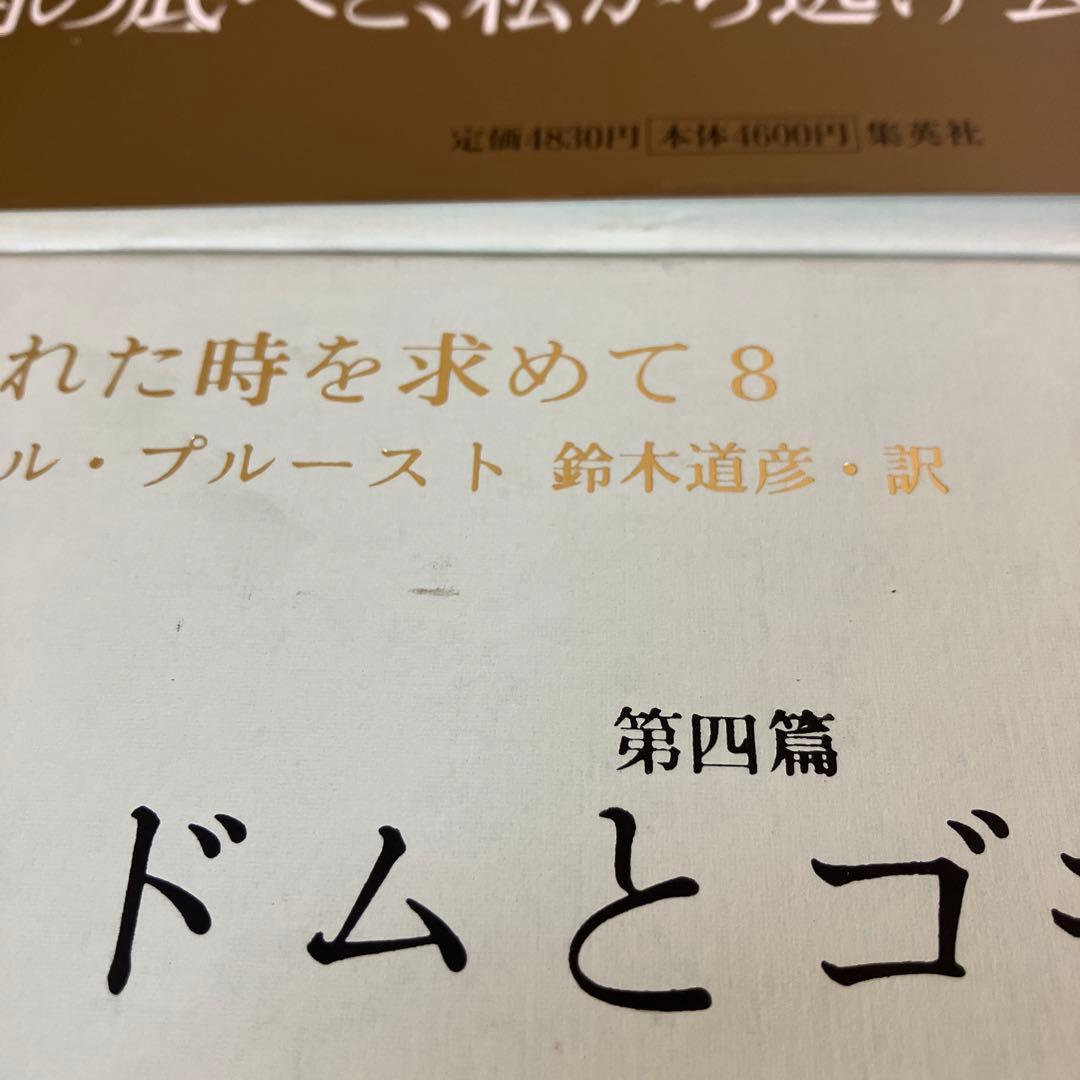 の底へと、私から逃げ
定価4830円 本体4600円 集英社
れた時を求めて 8
ル・プルースト 鈴木道彦・訳
第四篇
ドムとゴ